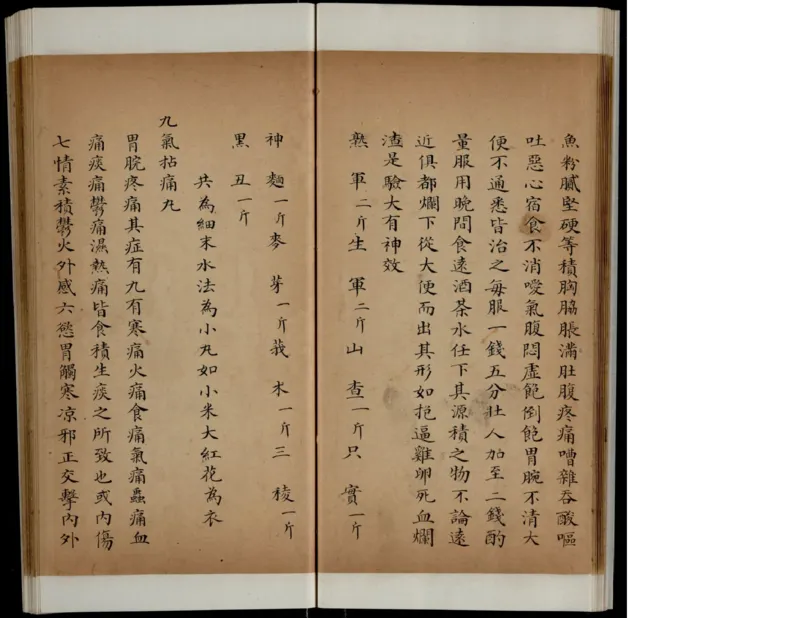 魚粉膩堅硬等積胸脇脹滿肚腹疼痛嘈雜吞酸嘔
吐惡心宿食不消噯氣腹悶虛飽倒飽胃腕不清大
便不通悉皆治之每服一錢五分壯人加至二錢酌
量服用晚間食遠酒茶水任下其源積之物不論遠
近俱都爛下從大便而出其形如疤逼雞卵死血爛
渣是驗大有神效
熟軍二斤生軍二斤山查一斤只實一斤
神麯一斤麥芽一斤莪朮一斤三稜一斤
黑丑一斤
共為細末水法為小丸如小米大紅花為衣
九氣拈痛丸
胃脘疼痛其症有九有寒痛火痛食痛氣痛蟲痛血
痛痰痛鬱痛濕熱痛皆食積生痰之所致也或內傷
七情素積鬱火外感六慾胃觸寒凉邪正交擊內外